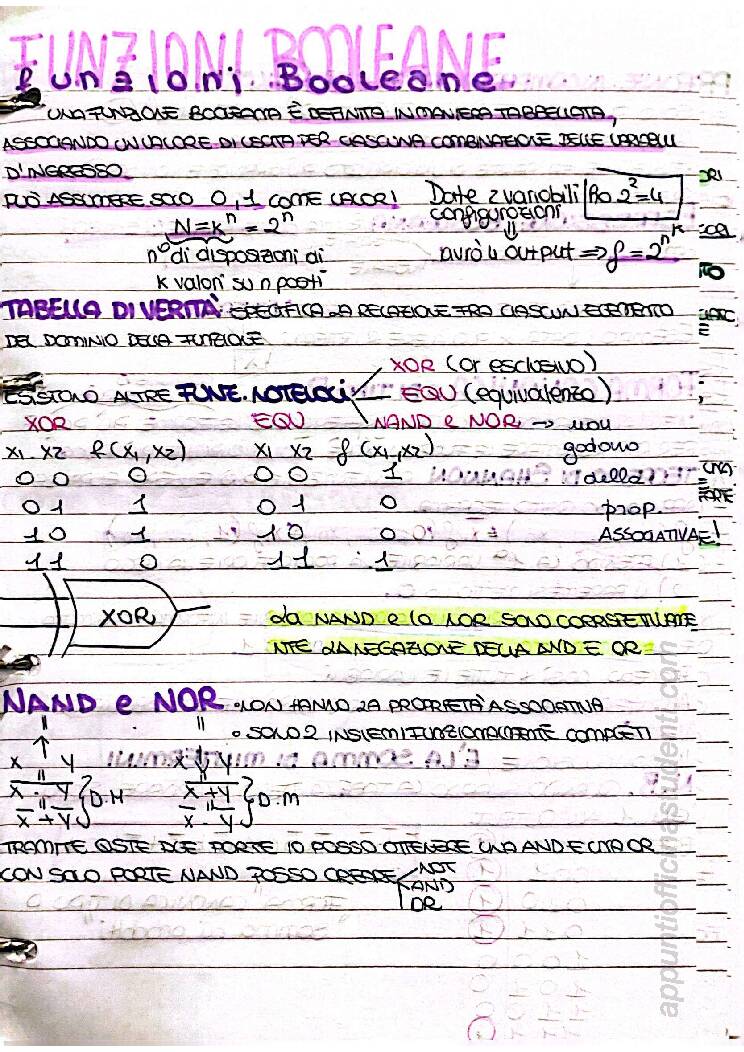 FUNZIONI BOOLEANE
Funzioni Booleane
UNA FUNZIONE BOOLEANA È DEFINITA IN MANIERA TABBELLATA,
ASSOCIANDO UN VALORE DI USCITA PER CIASCUNA COMBINAZIONE DELLE VARIABILI
D'INGRESSO.
PUÒ ASSUMERE SOLO 0,1 COME VALORI
N=kⁿ = 2ⁿ
n° di disposizioni di
k valori su n posti
Date 2 variabili Ho 2²=4
configurazioni
⇓
avrò 4 output ⇒ f = 2^n^k
TABELLA DI VERITÀ: SPECIFICA LA RELAZIONE FRA CIASCUN ELEMENTO
DEL DOMINIO DELLA FUNZIONE
ESISTONO ALTRE FUNZ. NOTEVOLI
XOR (or esclusivo)
EQU (equivalenza)
NAND e NOR → non
godono
della
prop.
ASSOCIATIVA!
XOR
x₁ x₂ f(x₁,x₂)
0 0 0
0 1 1
1 0 1
1 1 0
EQU
x₁ x₂ f(x₁,x₂)
0 0 1
0 1 0
1 0 0
1 1 1
XOR
LA NAND E LO NOR SONO CORRISPETTIVAME
NTE LA NEGAZIONE DELLA AND E OR
NAND e NOR • NON HANNO LA PROPRIETÀ ASSOCIATIVA
• SONO 2 INSIEMI FUNZIONALMENTE COMPLETI
x ↑ y x ↓ y
x · y } D.M x + y } D.M
x + y x · y
TRAMITE QSTE DUE PORTE IO POSSO OTTENERE UNA AND E UNA OR
CON SOLO PORTE NAND POSSO CREARE
NOT
AND
OR
appuntiofficinastudenti.com